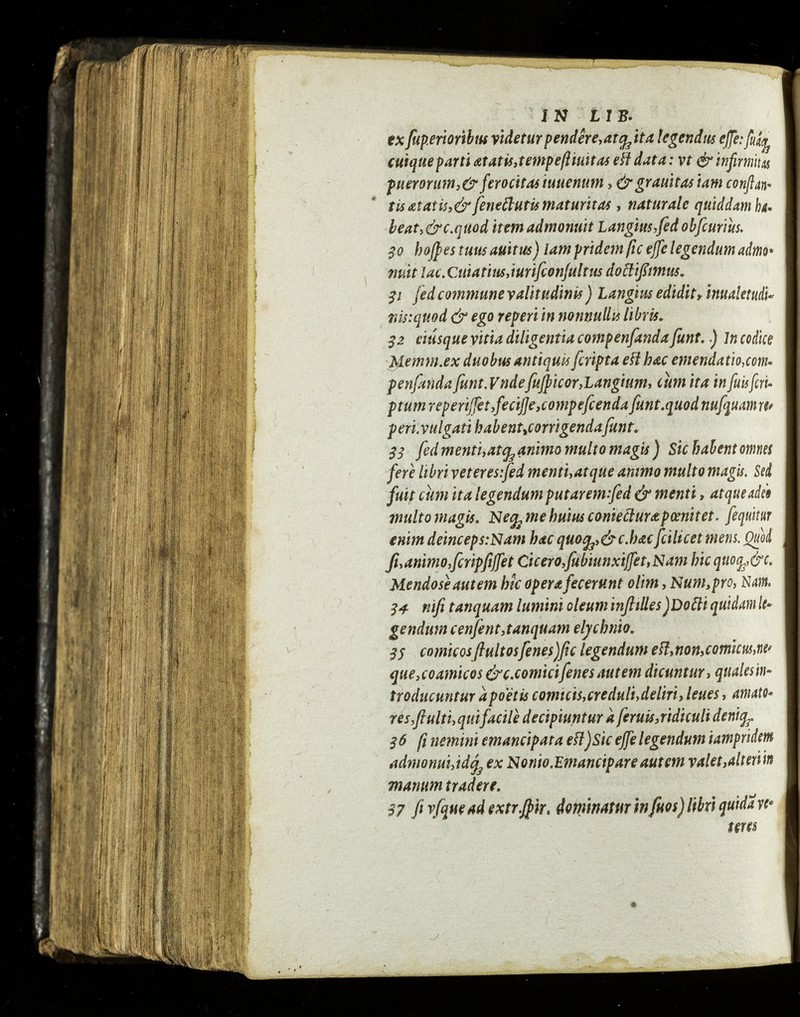 IN LIB.
ex ſuperioribus videtur pendêre, atq; ita legendus eſſe: ſuáq;
cuique parti ætatis, tempeſtiuitas eſt data: vt & infirmitas
puerorum, & ferocitas iuuenum, & grauitas iam conſtan-
tis ætatis, & ſenectutis maturitas, naturale quiddam ha-
beat, &c. quod item admonuit Langius, ſed obſcuriùs.
30 hoſpes tuus auitus) Iam pridem ſic eſſe legendum admo-
nuit Iac. Cuiatius, iuriſconſultus doctiſſimus.
31 ſed commune valitudinis) Langius edidit, inualetudi-
nis: quod & ego reperi in nonnullis libris.
32 eiúsque vitia diligentia compenſanda ſunt.) In codice
Memm. ex duobus antiquis ſcripta eſt hæc emendatio, com-
penſanda ſunt. Vnde ſuſpicor, Langium, cùm ita in ſuis ſcri-
ptum reperiſſet, feciſſe, compeſcenda ſunt. quod nuſquam re-
peri. vulgati habent, corrigenda ſunt.
33 ſed menti, atq; animo multo magis) Sic habent omnes
ferè libri veteres: ſed menti, atque animo multo magis. Sed
fuit cùm ita legendum putarem: ſed & menti, atque adeò
multo magis. Neq; me huius coniecturæ pœnitet. ſequitur
enim deinceps: Nam hæc quoq;, & c. hæc ſcilicet mens. Quòd
ſi, animo, ſcripſiſſet Cicero, ſubiunxiſſet, Nam hic quoq;, &c.
Mendosè autem hîc operæ fecerunt olim, Num, pro, Nam.
34 niſi tanquam lumini oleum inſtilles) Docti quidam le-
gendum cenſent, tanquam elychnio.
35 comicos ſtultos ſenes) ſic legendum eſt, non, comicus, ne-
que, coamicos &c. comici ſenes autem dicuntur, quales in-
troducuntur à poëtis comicis, creduli, deliri, leues, amato-
res, ſtulti, qui facilè decipiuntur à ſeruis, ridiculi deniq;.
36 ſi nemini emancipata eſt) Sic eſſe legendum iampridem
admonui, idq; ex Nonio. Emancipare autem valet, alteri in
manum tradere.
37 ſi vſque ad extr. ſpir. dominatur in ſuos) libri quidã ve-
teres